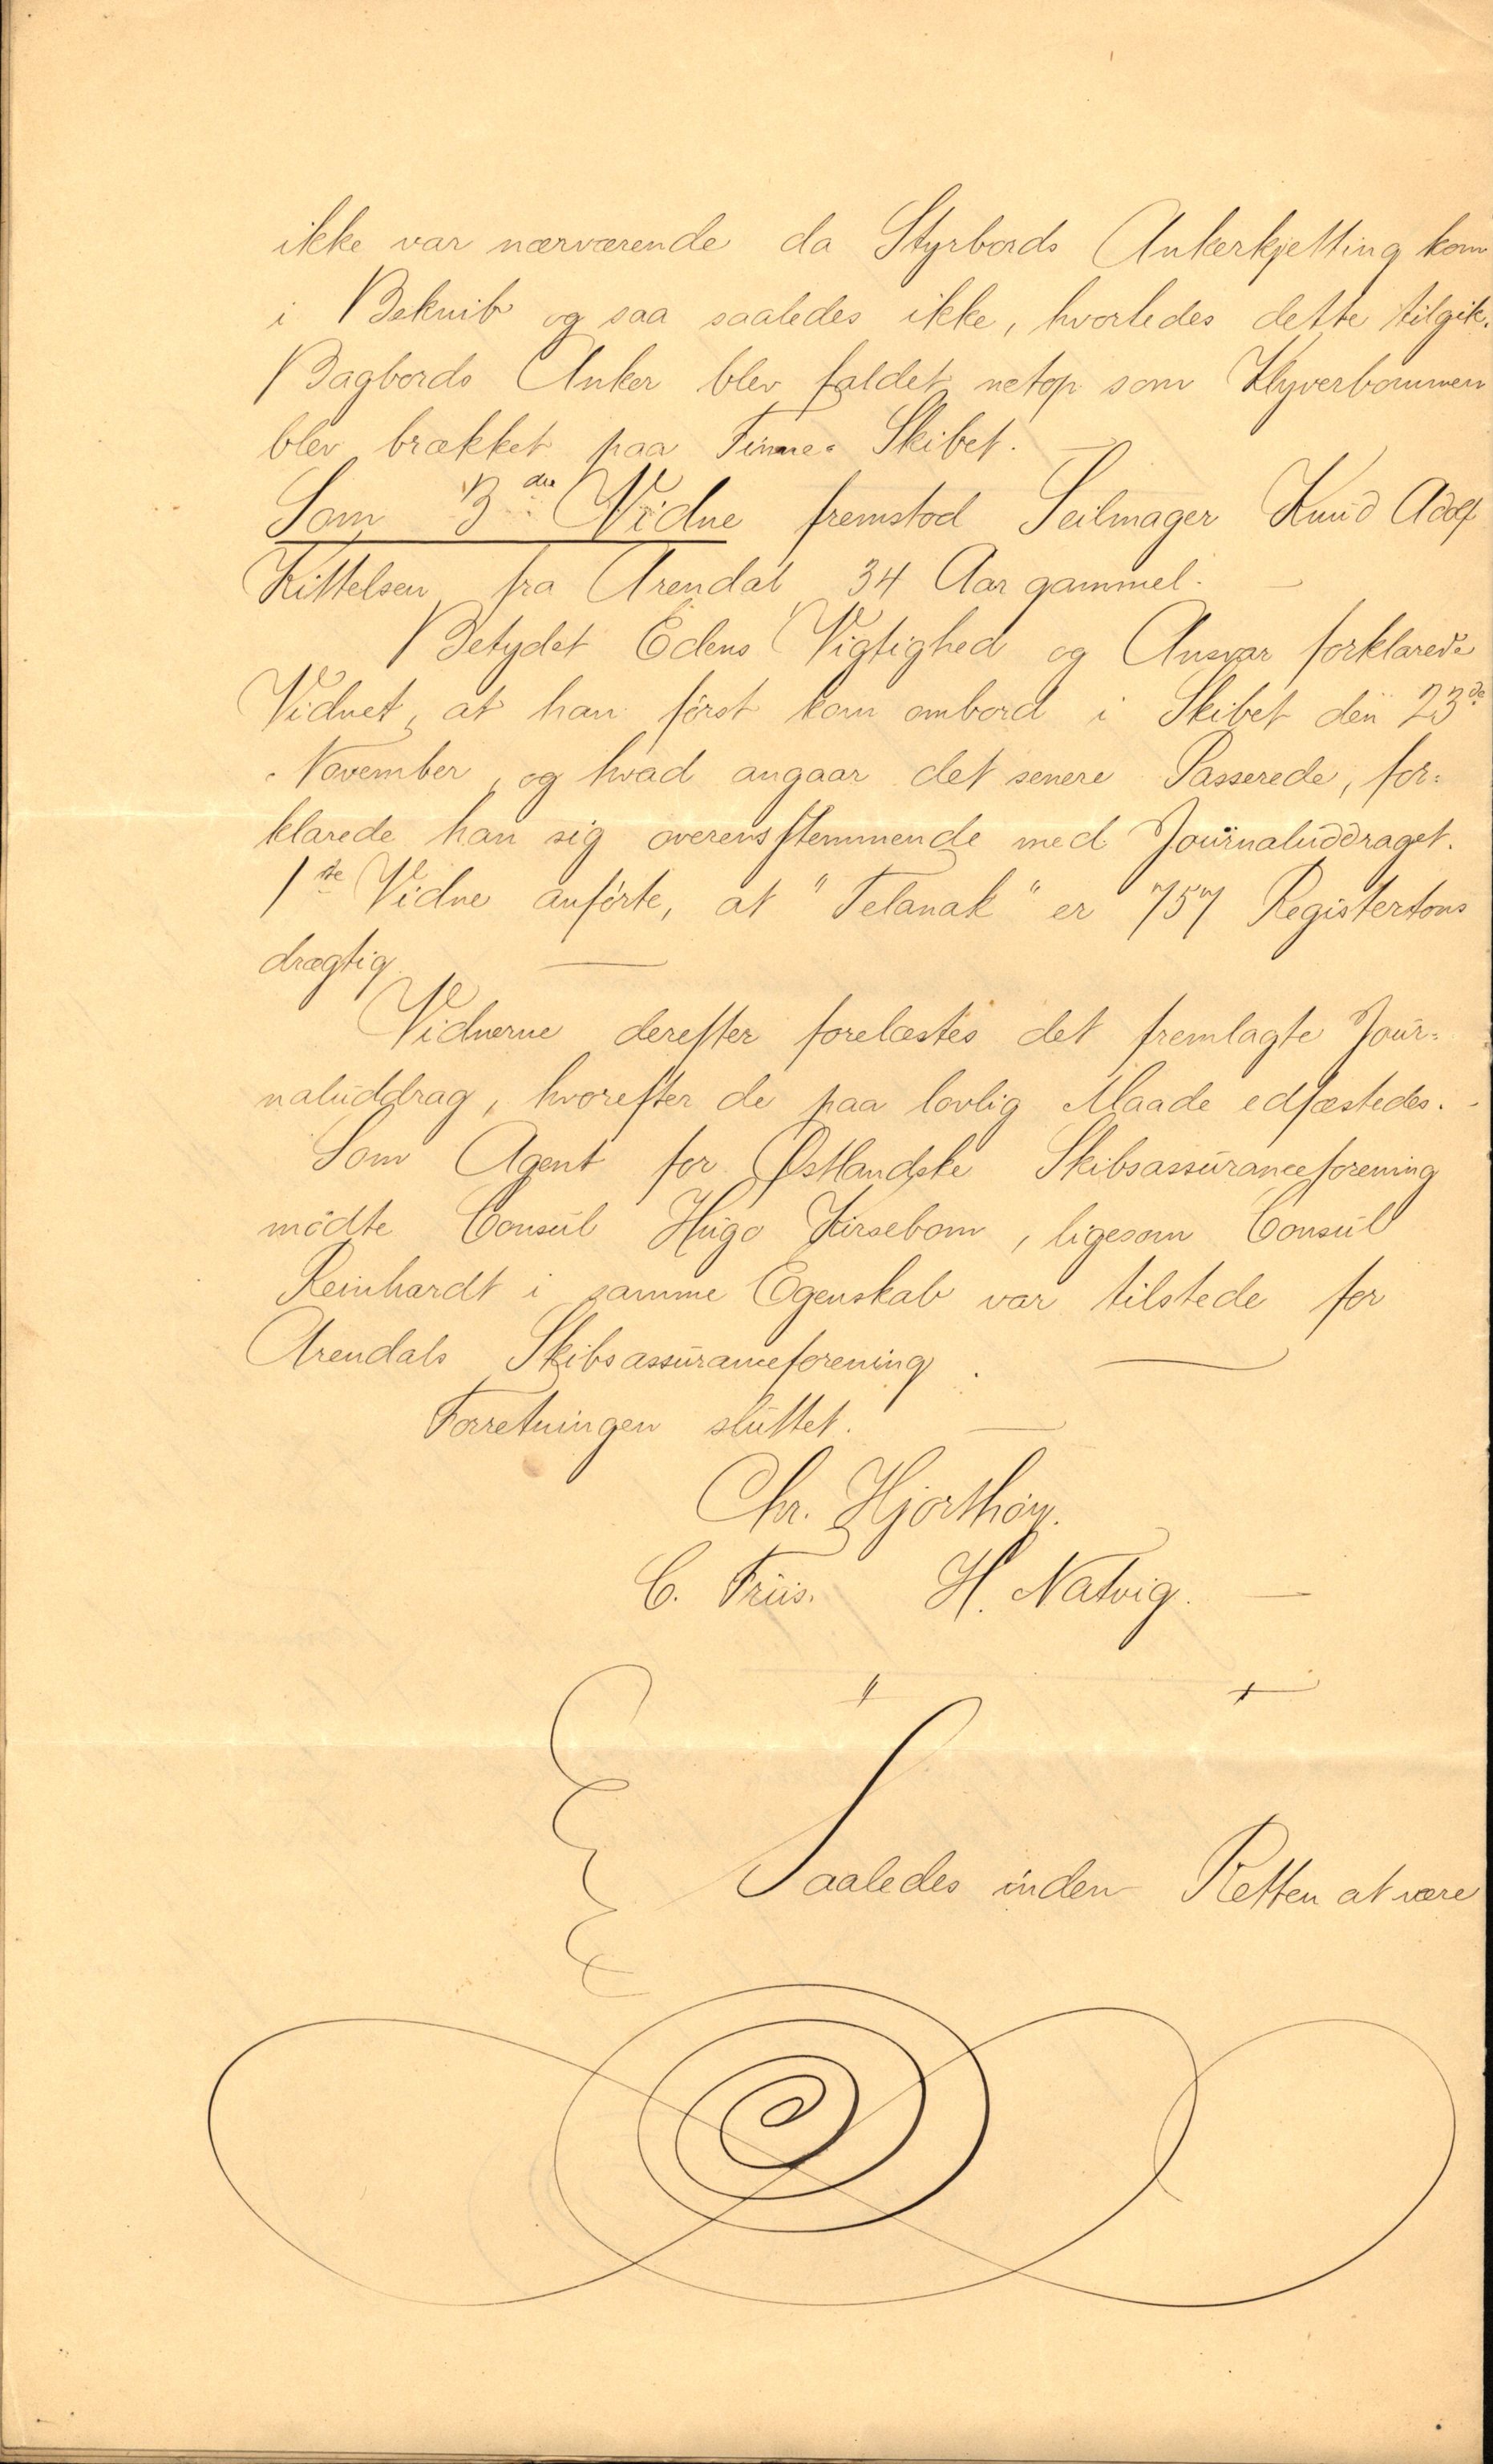 ikke var nærværende da Styrbords Ankerkjetting kom
i Beknib og saa saaledes ikke, hvorledes dette tilgik.
Bagbords Anker blev faldet netop som Klyverbommen
blev brækket paa Finne- Skibet. —
Som 3die Vidne fremstod Seilmager Knud Adolf
Kittelsen fra Arendal 34 Aar gammel. —
Betydet Edens Vigtighed og Ansvar forklarede
Vidnet, at han först kom ombord i Skibet den 23de
November, og hvad angaar det senere Passerede, for=
klarede han sig overensstemmende med Journaluddraget.
1ste Vidne anförte, at "Telanak" er 757 Registertons
drægtig. —
Vidnerne derefter forelæstes det fremlagte Jour=
naluddrag, hvorefter de paa lovlig Maade edfæstedes. -
Som Agent for Østlandske Skibsassuranceforening
mödte Consul Hugo Kirsebom, ligesom Consul
Reinhardt i samme Egenskab var tilstede for
Arendals Skibsassuranceforening. —
Forretningen sluttet. —
Chr. Hjorthöy.
C. Friis. H. Natvig. —
Saaledes inden Retten at være